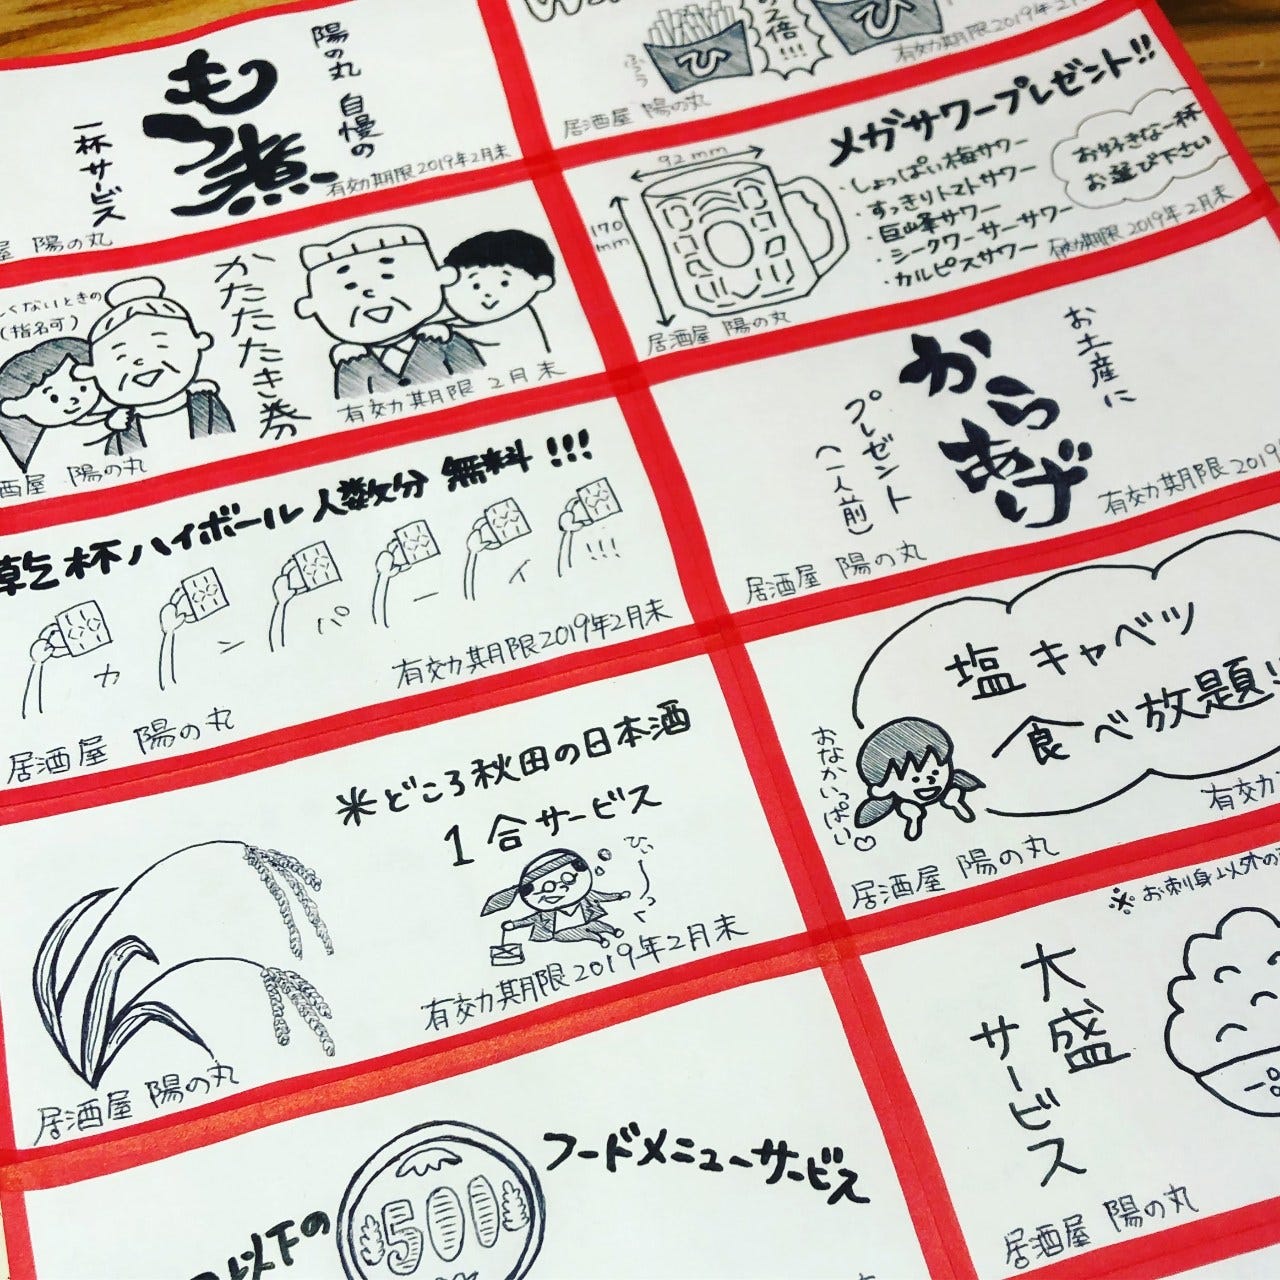 陽の丸 自慢の
もつ煮
一杯サービス
有効期限2019年2月末
屋 陽の丸
ひ
2倍!!!
ひ
有効期限2019年2
居酒屋 陽の丸
メガサワープレゼント!!
お好きな一杯
お選び下さい
92mm
170
mm
・しょっぱい梅サワー
・すっきりトマトサワー
・巨峰サワー
・シークワーサーサワー
・カルピスサワー
有効期限2019年2月末
居酒屋 陽の丸
くないときの
(指名可)
かたたたき券
有効期限 2月末
酒屋 陽の丸
お土産に
からあげ
プレゼント
(一人前)
有効期限2019
居酒屋 陽の丸
乾杯ハイボール人数分 無料!!!
カンパーイ!!!
有効期限2019年2月末
居酒屋 陽の丸
塩キャベツ
食べ放題!!
おなかいっぱい♡
有効
居酒屋 陽の丸
米どころ秋田の日本酒
1合サービス
有効期限2019年2月末
居酒屋 陽の丸
※お刺身以外の
大盛
サービス
居酒屋 陽の丸
以下の
500
フードメニューサービス